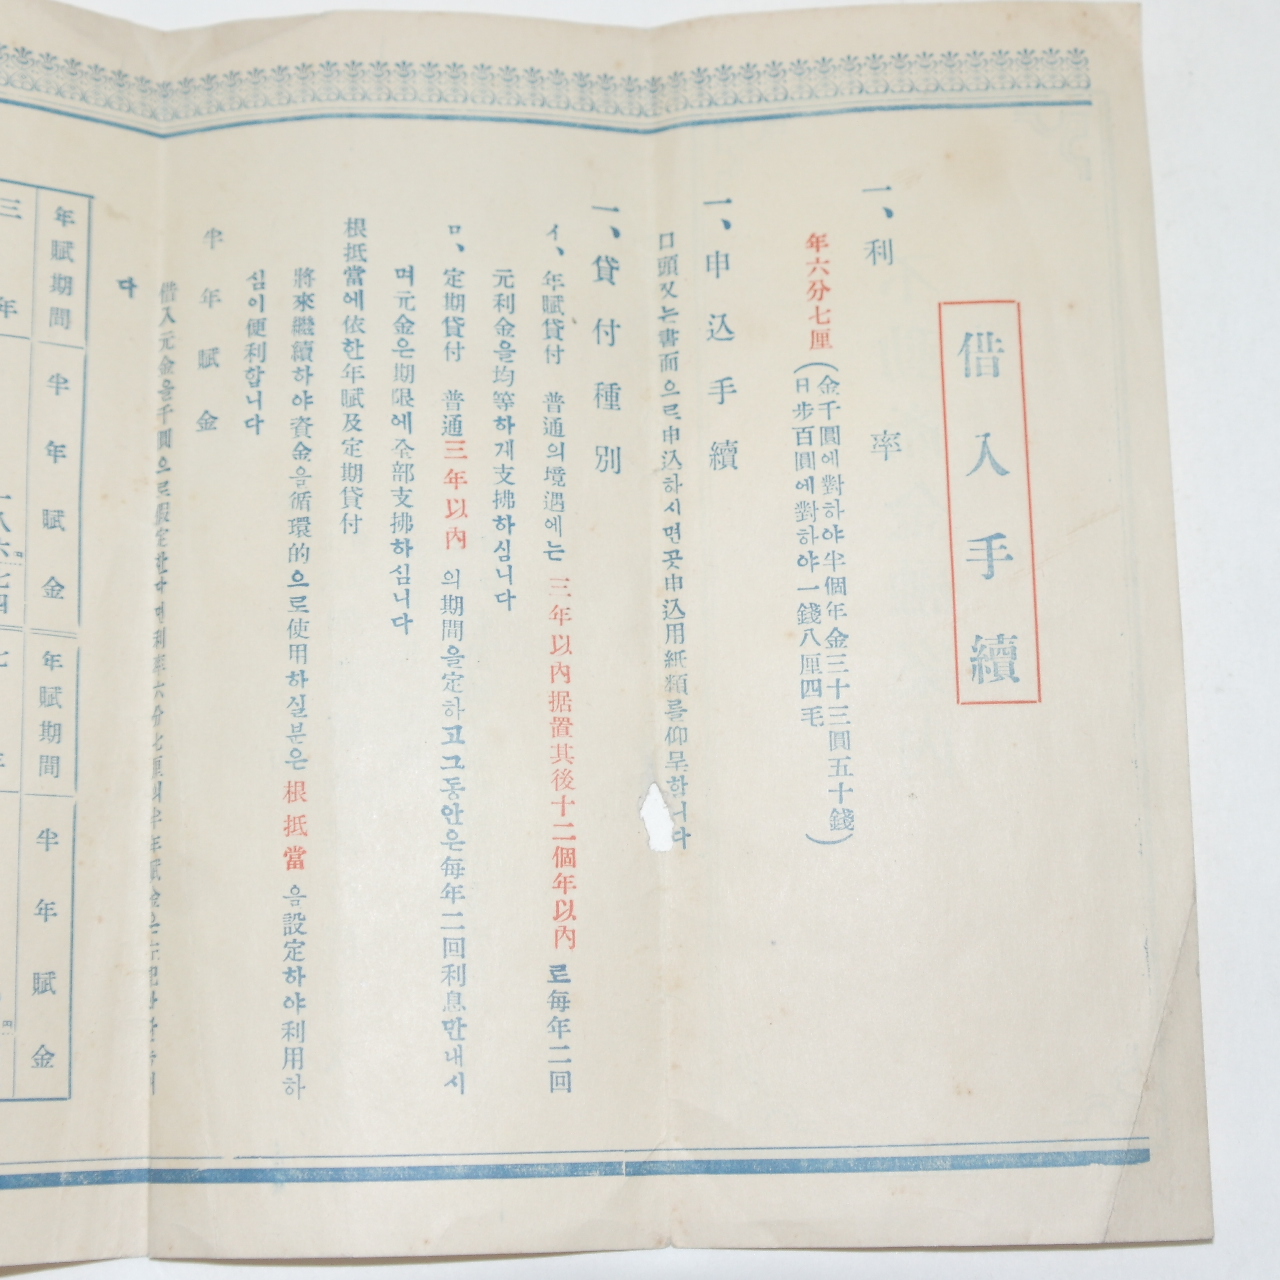 借入手續
一、利率
年六分七厘
(金千圓에對하야半個年金三十三圓五十錢
日步百圓에對하야一錢八厘四毛)
一、申込手續
口頭又는書面으로申込하시면곳申込用紙類를仰呈합니다
一、貸付種別
イ、年賦貸付 普通의境遇에는三年以內据置其後十二個年以內로每年二回
元利金을均等하게支拂하심니다
ロ、定期貸付 普通三年以內의期間을定하고그동안은每年二回利息만내시
며元金은期限에全部支拂하심니다
根抵當에依한年賦及定期貸付
將來繼續하야資金을循環的으로使用하실분은根抵當을設定하야利用하
심이便利합니다
半年賦金
借入元金을千圓으로假定한다면利率六分七厘의半年賦金은左記와
다
年賦期間 半年賦金 年賦期間 半年賦金
三年